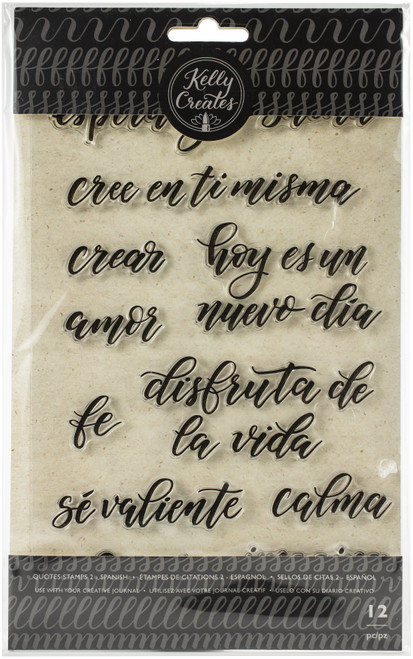 Kelly
Creates
cree en ti misma
crear
hoy es un
nuevo día
amor
disfruta de
la vida
fe
sé valiente
calma
QUOTES STAMPS 2 - SPANISH • ÉTAMPES DE CITATIONS 2 - ESPAGNOL • SELLOS DE CITAS 2 - ESPAÑOL
USE WITH YOUR CREATIVE JOURNAL • UTILISEZ AVEC VOTRE JOURNAL CRÉATIF • ÚSELO CON SU DIARIO CREATIVO
12
pc/pz